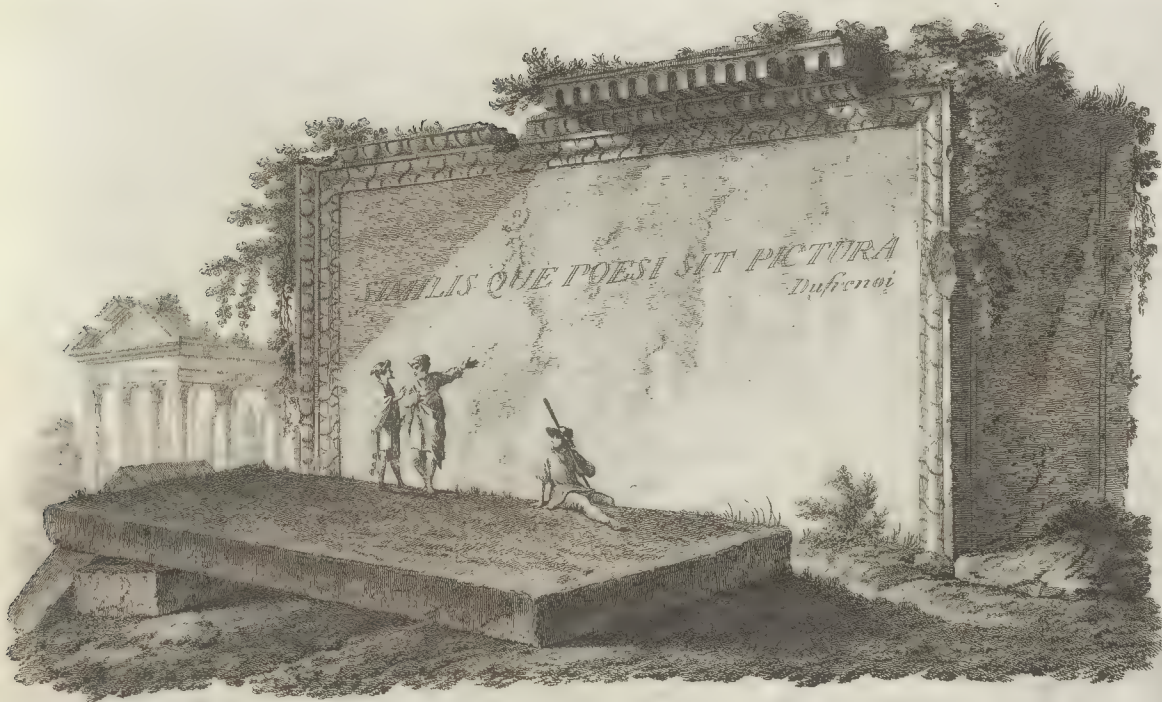 SIMILIS QUE POESI SIT PICTURA
Dufrenoi